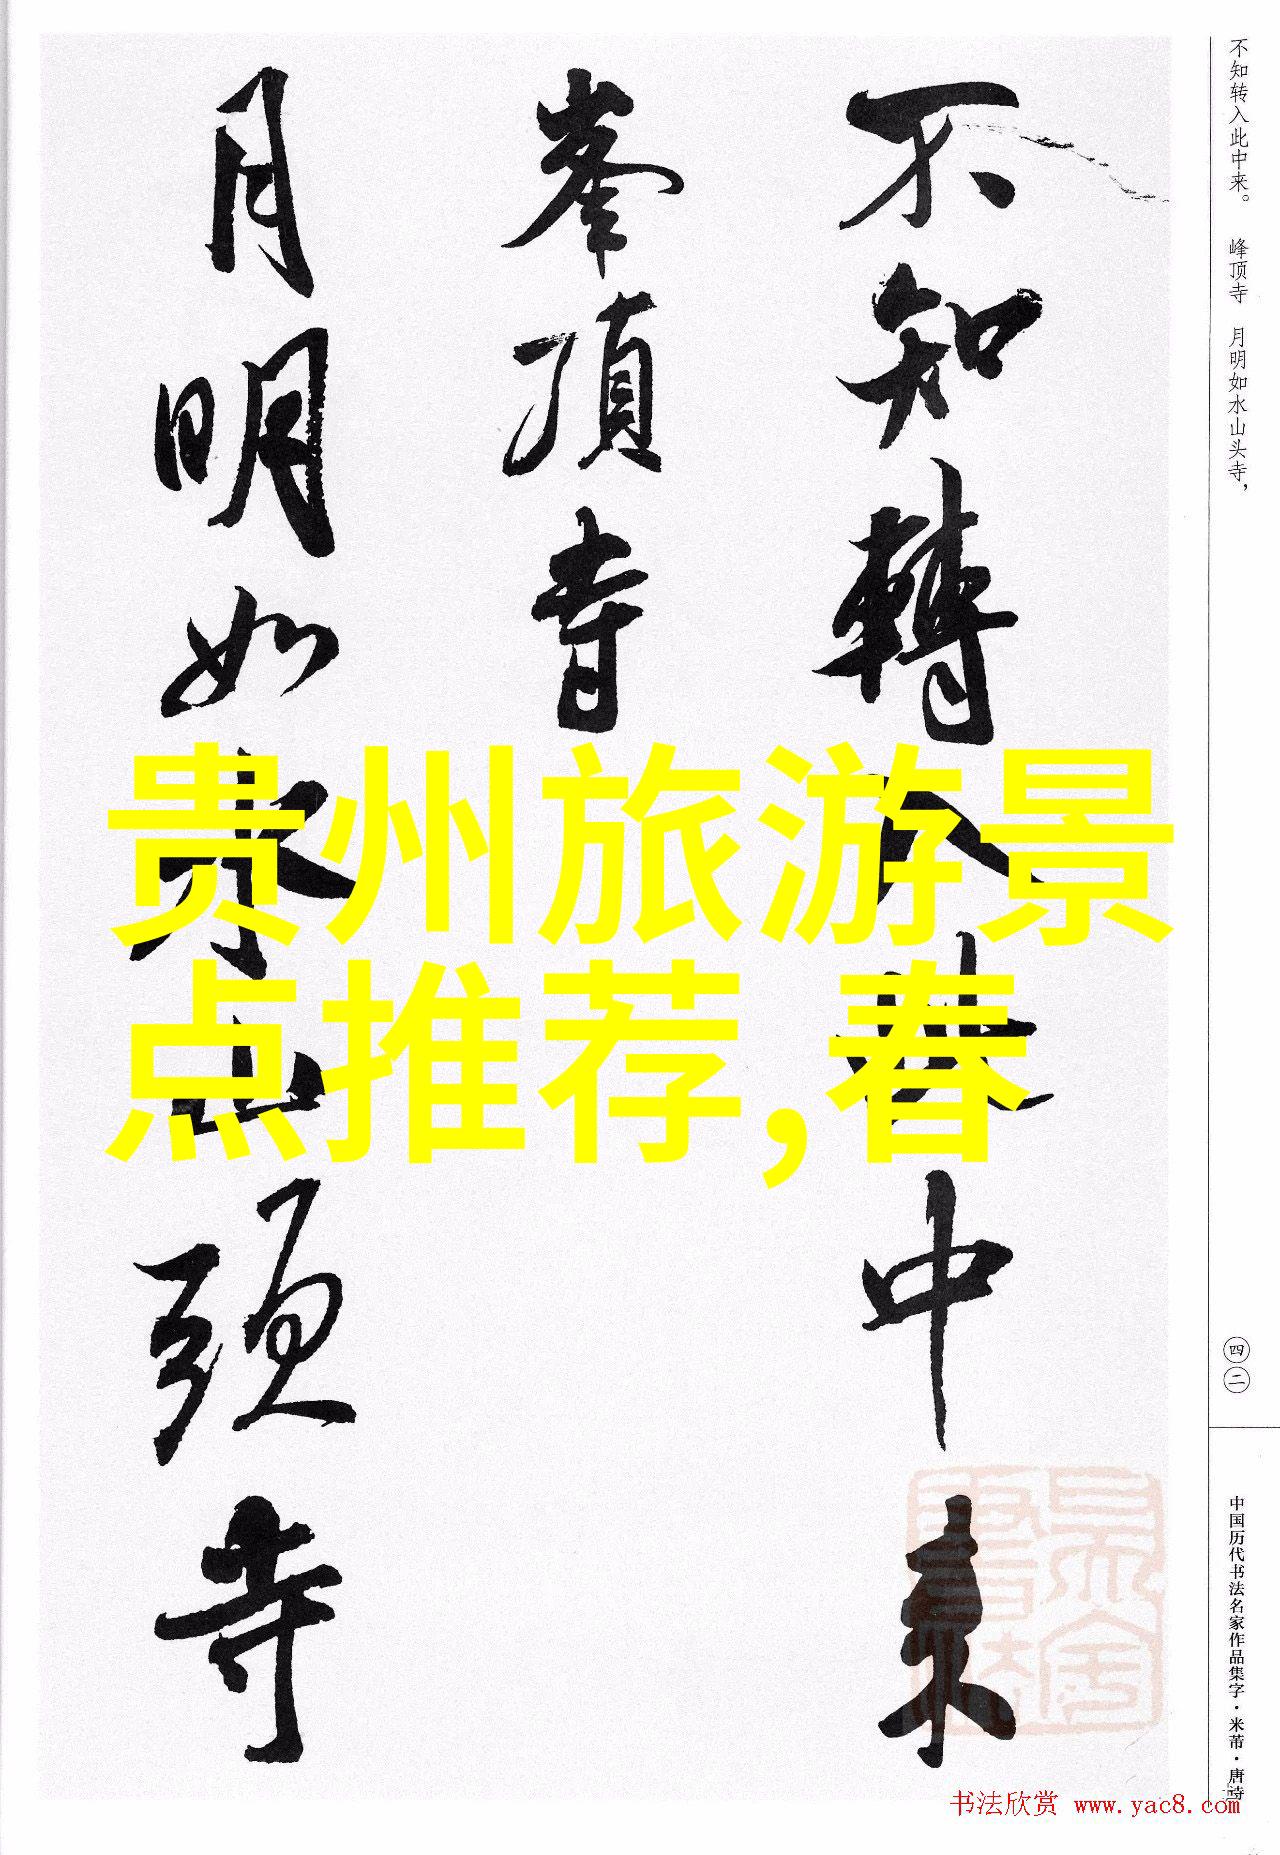 不知轉入此中来
峯頂寺
月明如水山頭寺
贵州旅游景
点推荐,春
不知转入此中来。 峰顶寺 月明如水山头寺，
四二
中国历代书法名家作品集字·米芾·唐诗
书法欣赏 www.yac8.com